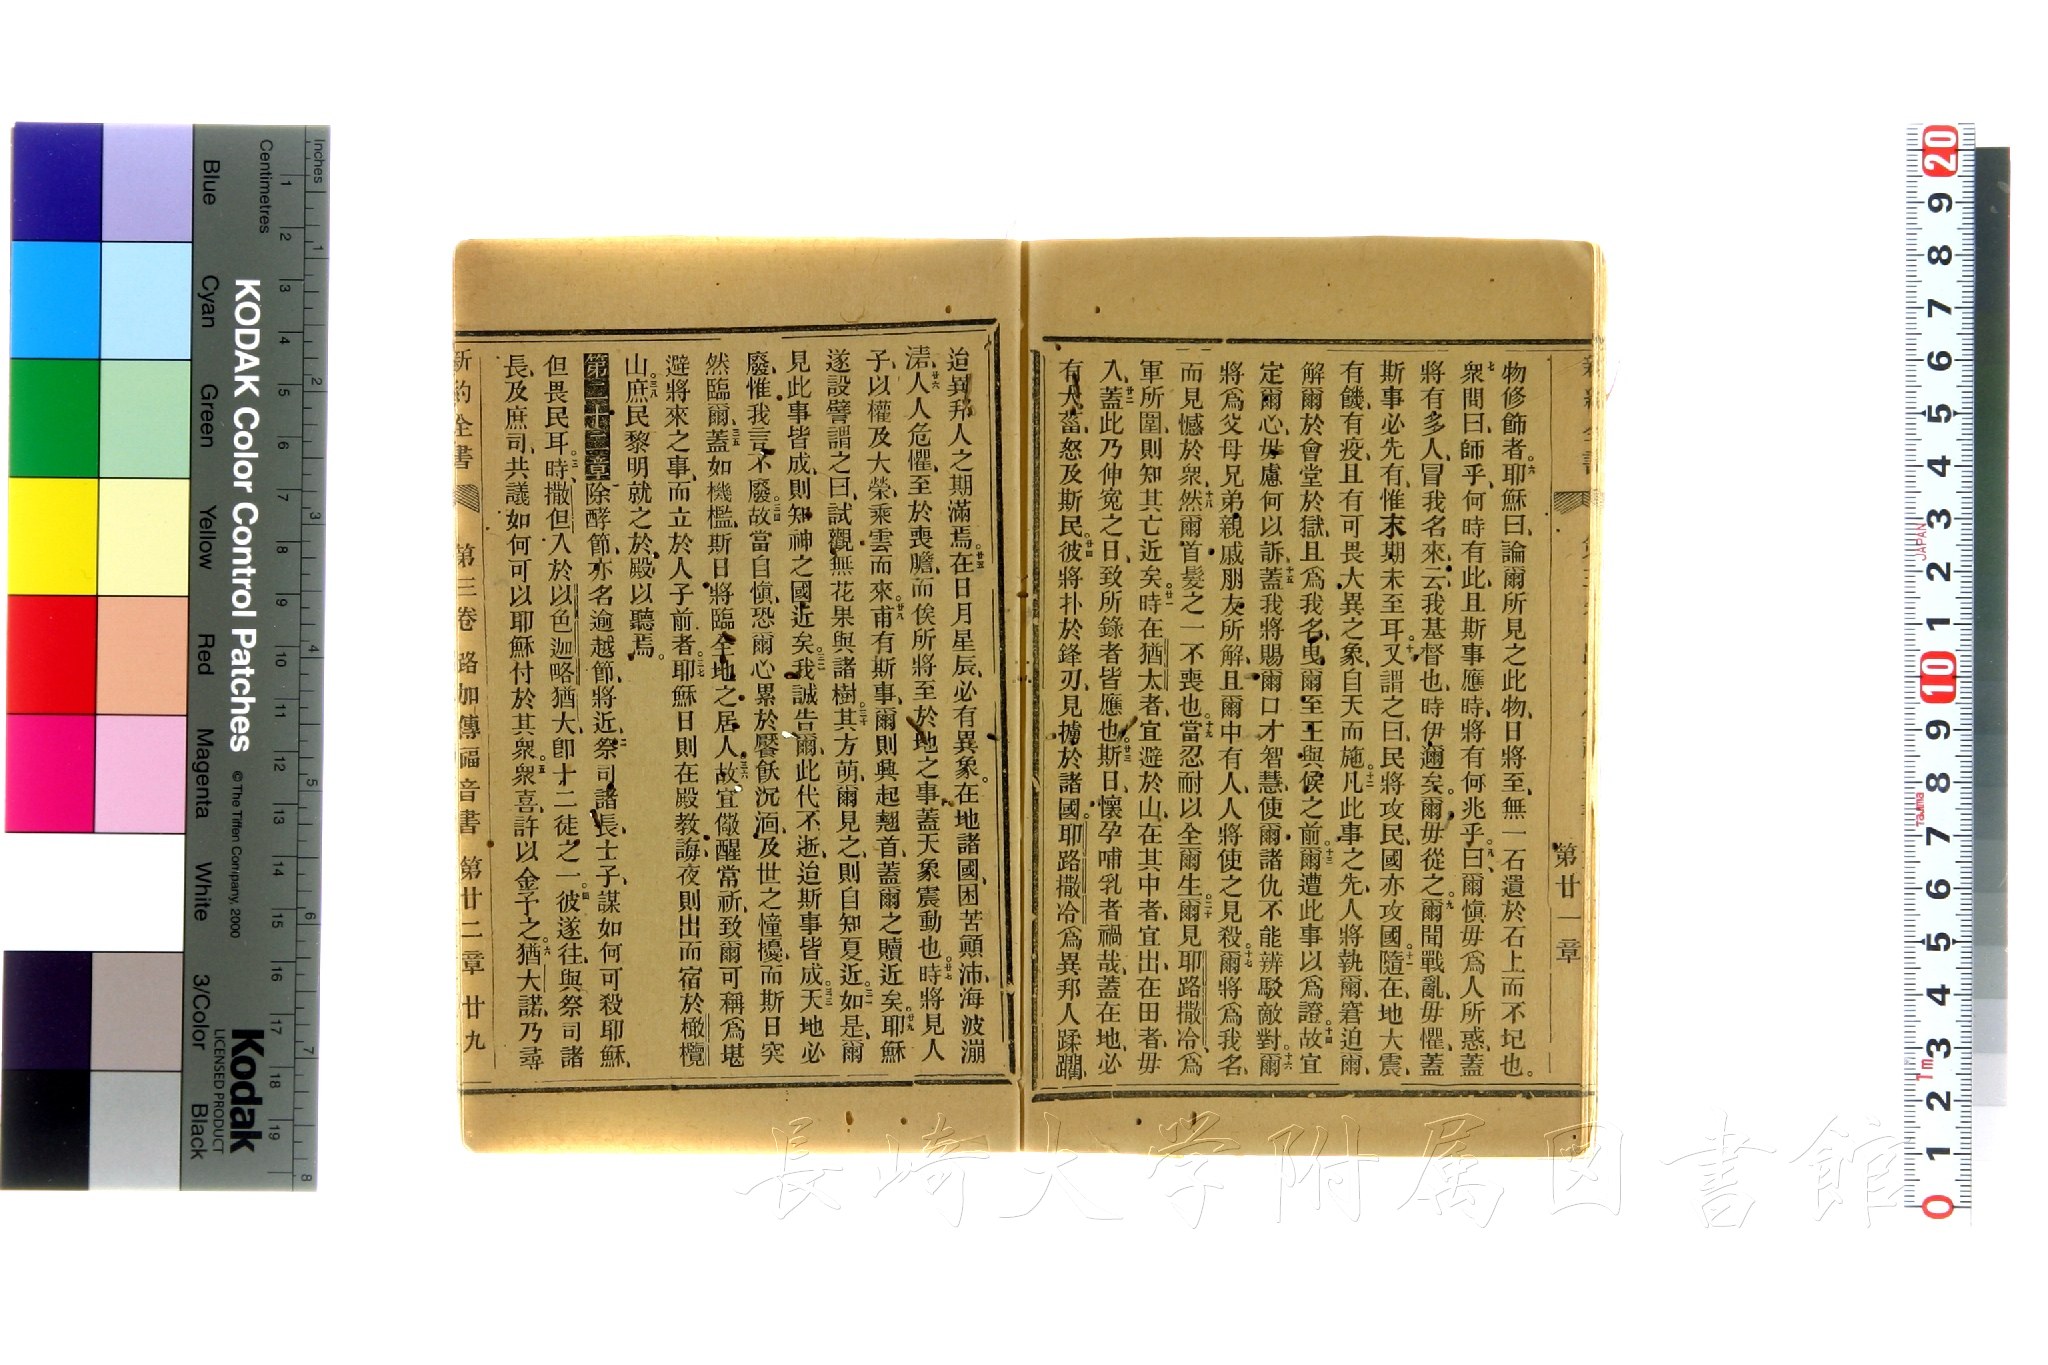 第廿一章
物修飾者、耶穌曰、論爾所見之此物、日將至、無一石遺於石上而不圮也。
衆問曰、師乎、何時有此、且斯事應時、將有何兆乎。曰、爾愼毋爲人所惑、蓋
將有多人、冒我名來、云我基督也、時伊邇矣。爾毋從之。爾聞戰亂毋懼、蓋
斯事必先有、惟末期未至耳、又謂之曰、民將攻民、國亦攻國、隨在地大震、
有饑有疫、且有可畏大異之象、自天而施。凡此事之先、人將執爾窘迫爾、
解爾於會堂於獄、且爲我名、曳爾至王與侯之前、爾遭此事以爲證。故宜
定爾心、毋慮何以訴、蓋我將賜爾口才智慧、使爾諸仇不能辨駁敵對。爾
將爲父母兄弟親戚朋友所解、且爾中有人、人將使之見殺、爾將爲我名、
而見憾於衆、然爾首髮之一不喪也。當忍耐以全爾生、爾見耶路撒冷、爲
軍所圍、則知其亡近矣。時在猶太者、宜避於山、在其中者宜出、在田者毋
入、蓋此乃伸寃之日、致所錄者皆應也、斯日懷孕哺乳者禍哉、蓋在地必
有大菑、怒及斯民。彼將扑於鋒刃、見擄於諸國。耶路撒冷爲異邦人蹂躪、
迨異邦人之期滿焉。在日月星辰、必有異象。在地諸國、困苦顚沛、海波漰
湱、人人危懼、至於喪膽、而俟所將至於地之事、蓋天象震動也。時將見人
子、以權及大榮、乘雲而來。甫有斯事、爾則興起翹首、蓋爾之贖近矣、耶穌
遂設譬謂之曰、試觀無花果與諸樹、其方萌、爾見之、則自知夏近、如是、爾
見此事皆成、則知神之國近矣、我誠告爾、此代不逝、迨斯事皆成、天地必
廢、惟我言不廢。故當自愼、恐爾心累於饜飫沉湎、及世之憧擾、而斯日突
然臨爾、蓋如機檻、斯日將臨全地之居人、故宜儆醒常祈、致爾可稱爲堪
避將來之事、而立於人子前者、耶穌日則在殿教誨、夜則出而宿於橄欖
山、庶民黎明就之於殿以聽焉。
第二十二章除酵節、亦名逾越節、將近、祭司諸長士子、謀如何可殺耶穌、
但畏民耳、時、撒但入於以色迦略猶大、卽十二徒之一。彼遂往與祭司諸
長、及庶司、共議如何可以耶穌付於其衆。衆喜、許以金予之、猶大諾、乃尋
新約全書 第三卷 路加傳福音書 第廿二章 廿九
KODAK Color Control Patches
© The Tiffen Company, 2000
Kodak
LICENSED PRODUCT
Inches
Centimetres
Blue Cyan Green Yellow Red Magenta White 3/Color Black
長崎大学附属図書館